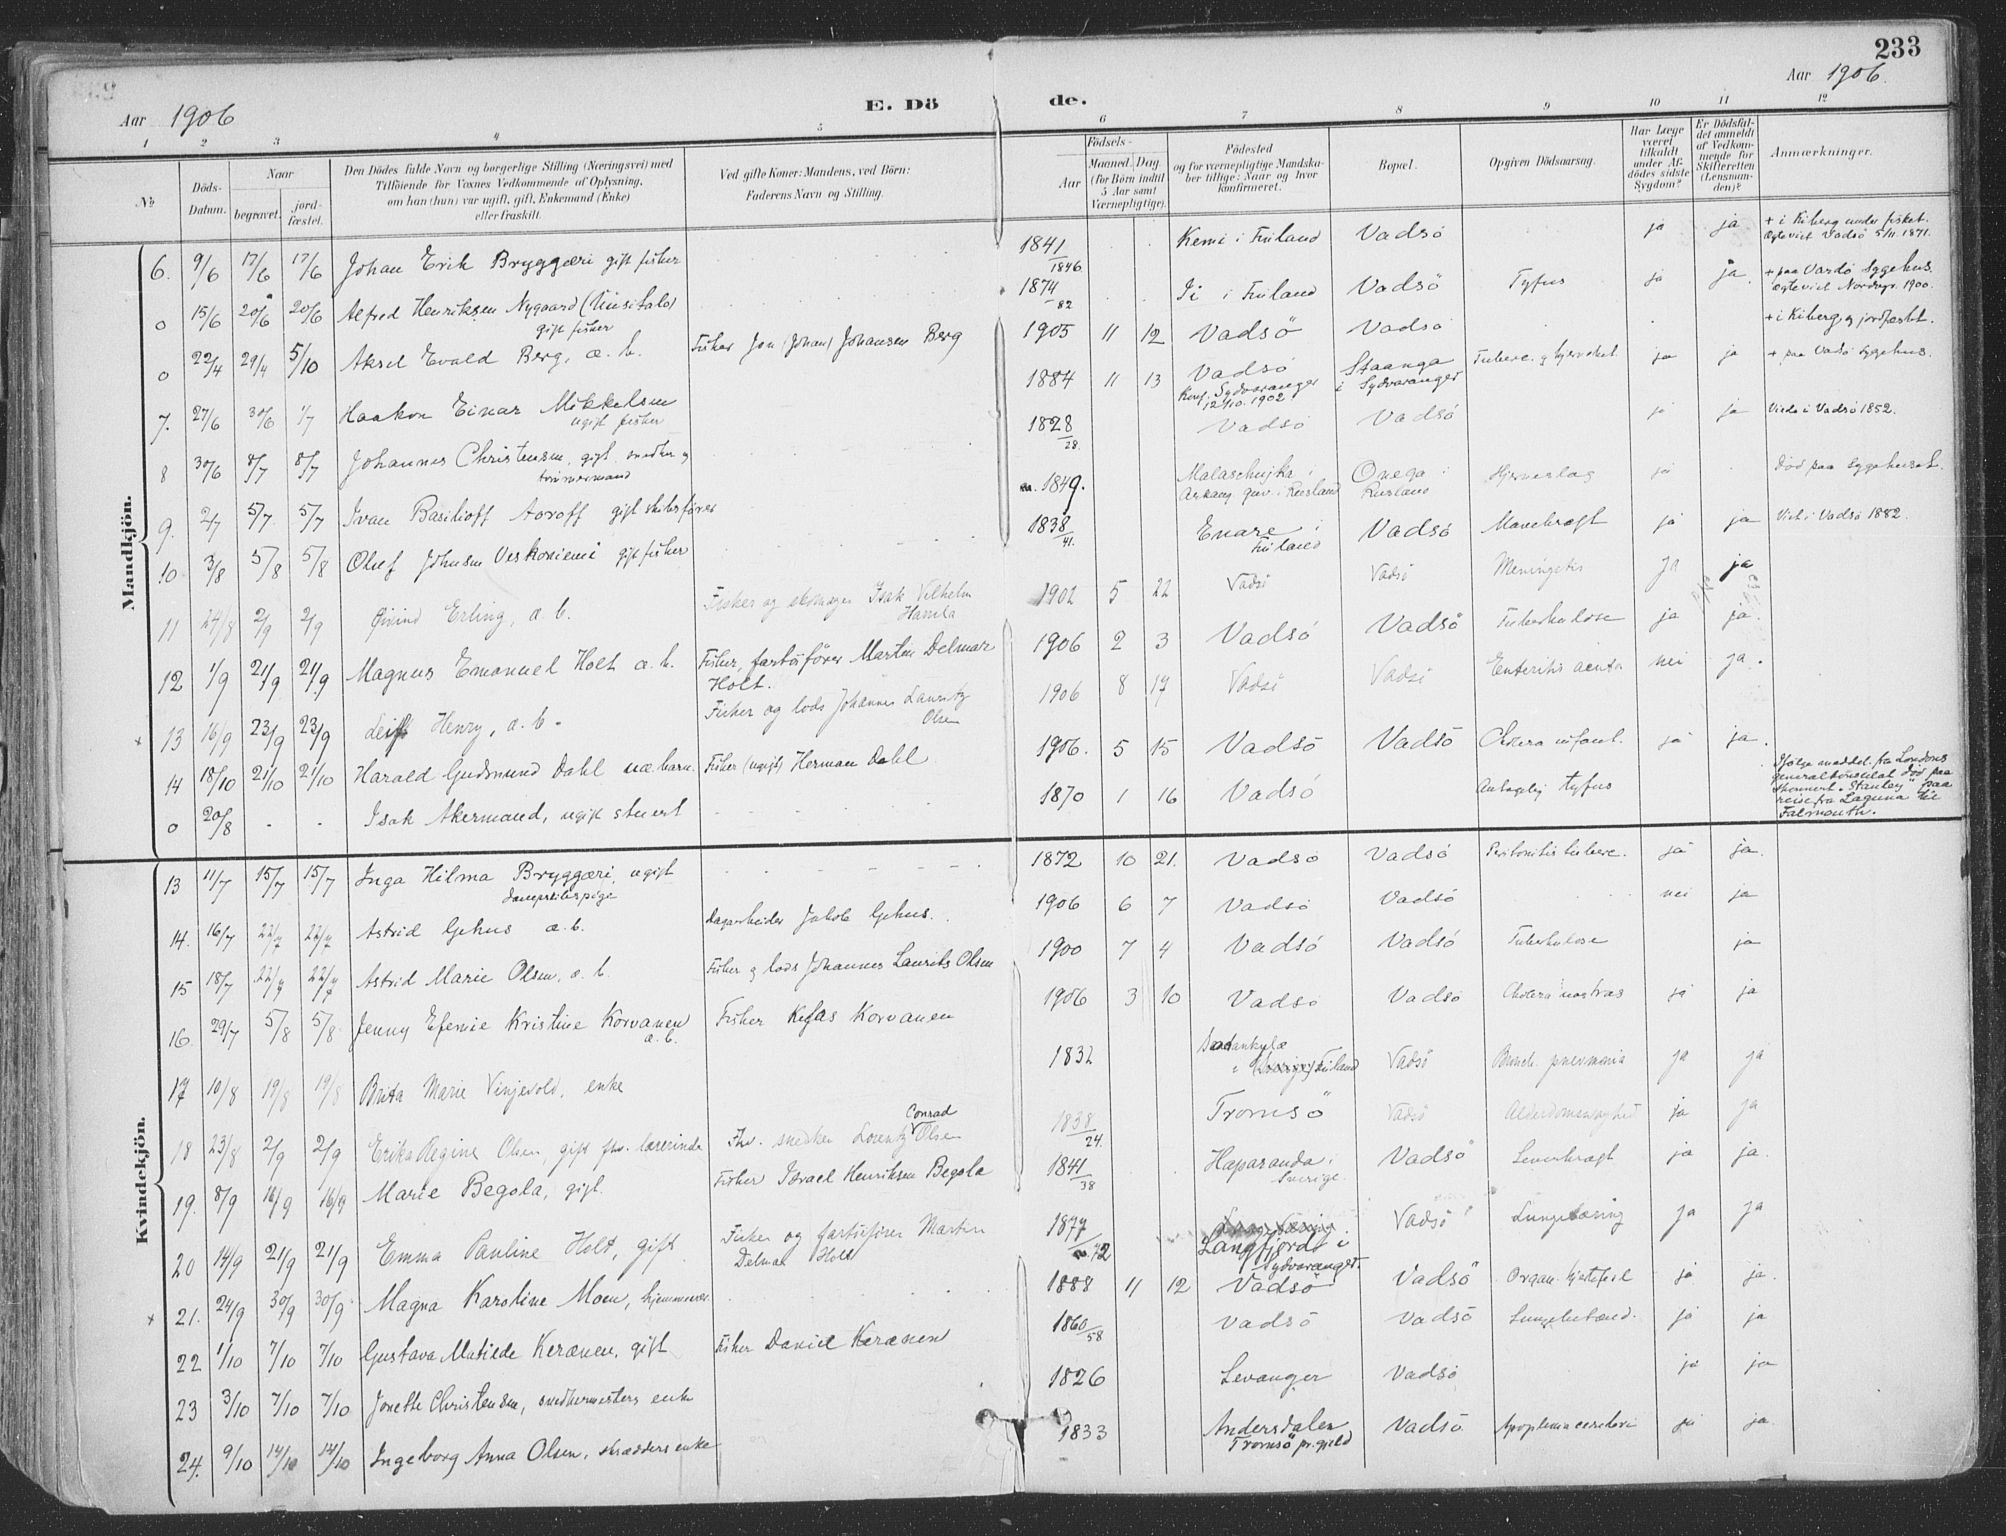 233
Aar 1906
E. Dö de.
Aar 1906.
1 2 3 4 5 6 7 8 9 10 11 12
No
Döds-Datum.
Naar
begravet.
jord-fæstet.
Den Dödes fulde Navn og borgerlige Stilling (Næringsvei) med
Tilföiende for Voxnes Vedkommende af Oplysning,
om han (hun) var ugift, gift, Enkemand (Enke)
eller fraskilt.
Ved gifte Koner: Mandens, ved Börn:
Faderens Navn og Stilling.
Födsels-
Aar
Maaned. Dag.
(for Börn indtil
5 Aar samt
Værnepligtige).
Födested
og for værnepligtige Mandska-
ber tillige: Naar og hvor
konfirmeret.
Bopæl.
Opgiven Dödsaarsag.
Har Læge
været
tilkaldt
under Af-
dödes sidste
Sygdom?
Er Dödsfal-
det anmeldt
af Vedkom-
mende for
Skifteretten
(Lensman-
den)?
Anmærkninger.
Mandkjön.
6. 9/6 17/6 17/6 Johan Erik Bryggæri gift fisker 1841/1846 Kemi i Finland Vadsö ja ja + i Kiberg under fisket.
Ægteviet Vadsö 5/11 1871.
0 15/6 20/6 20/6 Alfred Henriksen Nygaard (Uusitalo)
gift fisker 1874/82 Ii i Finland Vadsö Tyfus ja ja + paa Vardö Sygehus.
Ægteviet Nordvgr. 1900.
0 22/4 29/4 5/10 Aksel Evald Berg, æ. b. Fisker Jon (Johan) Johansen Berg 1905 11 12 Vadsö Vadsö + i Kiberg, og jordfæstet.
7. 27/6 30/6 1/7 Haakon Einar Mikkelsen
ugift fisker 1884 11 13 Vadsö
Konf. Sydvaranger
12/10. 1902 Staanga
i Sydvaranger Tuberc. ja ja + paa Vadsö Sygehus.
8 30/6 8/7 8/7 Johannes Christensen, gift, snedker og
tömmermand 1828/28. Vadsö Vadsö ja ja Viede i Vadsö 1852.
9. 2/7 5/7 5/7 Ivan Basilioff Aoroff gift skibsförer 1849. i
Arkang. guv. i Rusland Onega i
Rusland Hjerneslag ja Död paa Sygehuset.
10 3/8 5/8 5/8 Oluf Johnsen Veskoniemi gift fisker 1838/41. Enare i
Finland Vadsö Mavekræft ja ja Viet i Vadsö 1882.
11 24/8 2/9 2/9 Öivind Erling, æ. b. Fisker og skomager Isak Vilhelm
Hamla 1902 5 22 Vadsö Vadsö Meningitis ja ja
12 1/9 21/9 21/9 Magnus Emanuel Holt æ. b. Fisker, fartöiförer Martin Delmar
Holt. 1906 2 3 Vadsö Vadsö Tuberkulose ja ja.
13 16/9 23/9 23/9 Leif Henry, æ. b. Fisker og lods Johannes Lauritz
Olsen 1906 8 17 Vadsö Vadsö Enteritis acuta nei ja.
14 18/10 21/10 21/10 Harald Gudmund Dahl uæ. barn Fisker (ugift) Herman Dahl 1906. 5 15 Vadsö Vadsö Cholera infant. ja ja.
0 20/8 - - Isak Akermand, ugift stuert 1870 1 16 Vadsö Antagelig tyfus Ifölge meddel. fra Londons
generalkonsulat död paa
skonnert "Stanley" paa
reise fra Laguna til
Falmouth.
Kvindekjön.
13 11/7 15/7 15/7 Inga Hilma Bryggæri, ugift 1872 10 21. Vadsö Vadsö Peritonitis tuberc. ja ja.
14. 16/7 22/7 22/7 Astrid Gehus æ. b. dagarbeider Jakob Gehus. 1906 6 7 Vadsö Vadsö nei ja
15 18/7 22/7 22/7 Astrid Marie Olsen, æ. b. Fisker og lods Johannes Laurits Olsen 1900 7 4 Vadsö Vadsö Tuberkulose ja
16. 29/7 5/8 5/8 Jenny Efenie Kristine Korvanen
æ. b. Fisker Kefas Korvanen 1906 3 10 Vadsö Vadsö Cholera nostras ja ja
17 10/8 19/8 19/8 Brita Marie Vinjevold, enke 1832 Sodankylæ
i Finland Vadsö Bronch. pneumonia ja ja
18 23/8 2/9 2/9 Erika Regine Olsen, gift fhv. lærerinde Fhv. snedker Lorentz Conrad Olsen 1838/24. Tromsö Vadsö Alderdomssvaghed ja ja
19. 8/9 16/9 16/9 Marie Begola, gift. Fisker Israel Henriksen Begola 1841/38 Haparanda i
Sverige. Vadsö Leverkræft ja ja.
20 14/9 21/9 21/9 Emma Pauline Holt, gift Fisker og fartöiförer Martin
Delmar Holt 1877/72 Langfjord i
Sydvaranger. Vadsö Lungetæring ja ja
21. 24/9 30/9 30/9. Magna Karoline Moen, hjemmevær. 1888 11 12 Vadsö Vadsö Organ. hjertefeil ja ja.
22 1/10 7/10 7/10 Gustava Matilde Keränen, gift Fisker Daniel Keränen 1860/58 Vadsö Vadsö Lungebetænd. ja ja
23 3/10 7/10 7/10 Jonette Christensen, snedkermesters enke 1826 Levanger Vadsö ja ja
24. 9/10 14/10 14/10 Ingeborg Anna Olsen, skrædders enke 1833 Andersdalen
Tromsö pr.gjeld Vadsö Apoplexia cerebri ja ja.